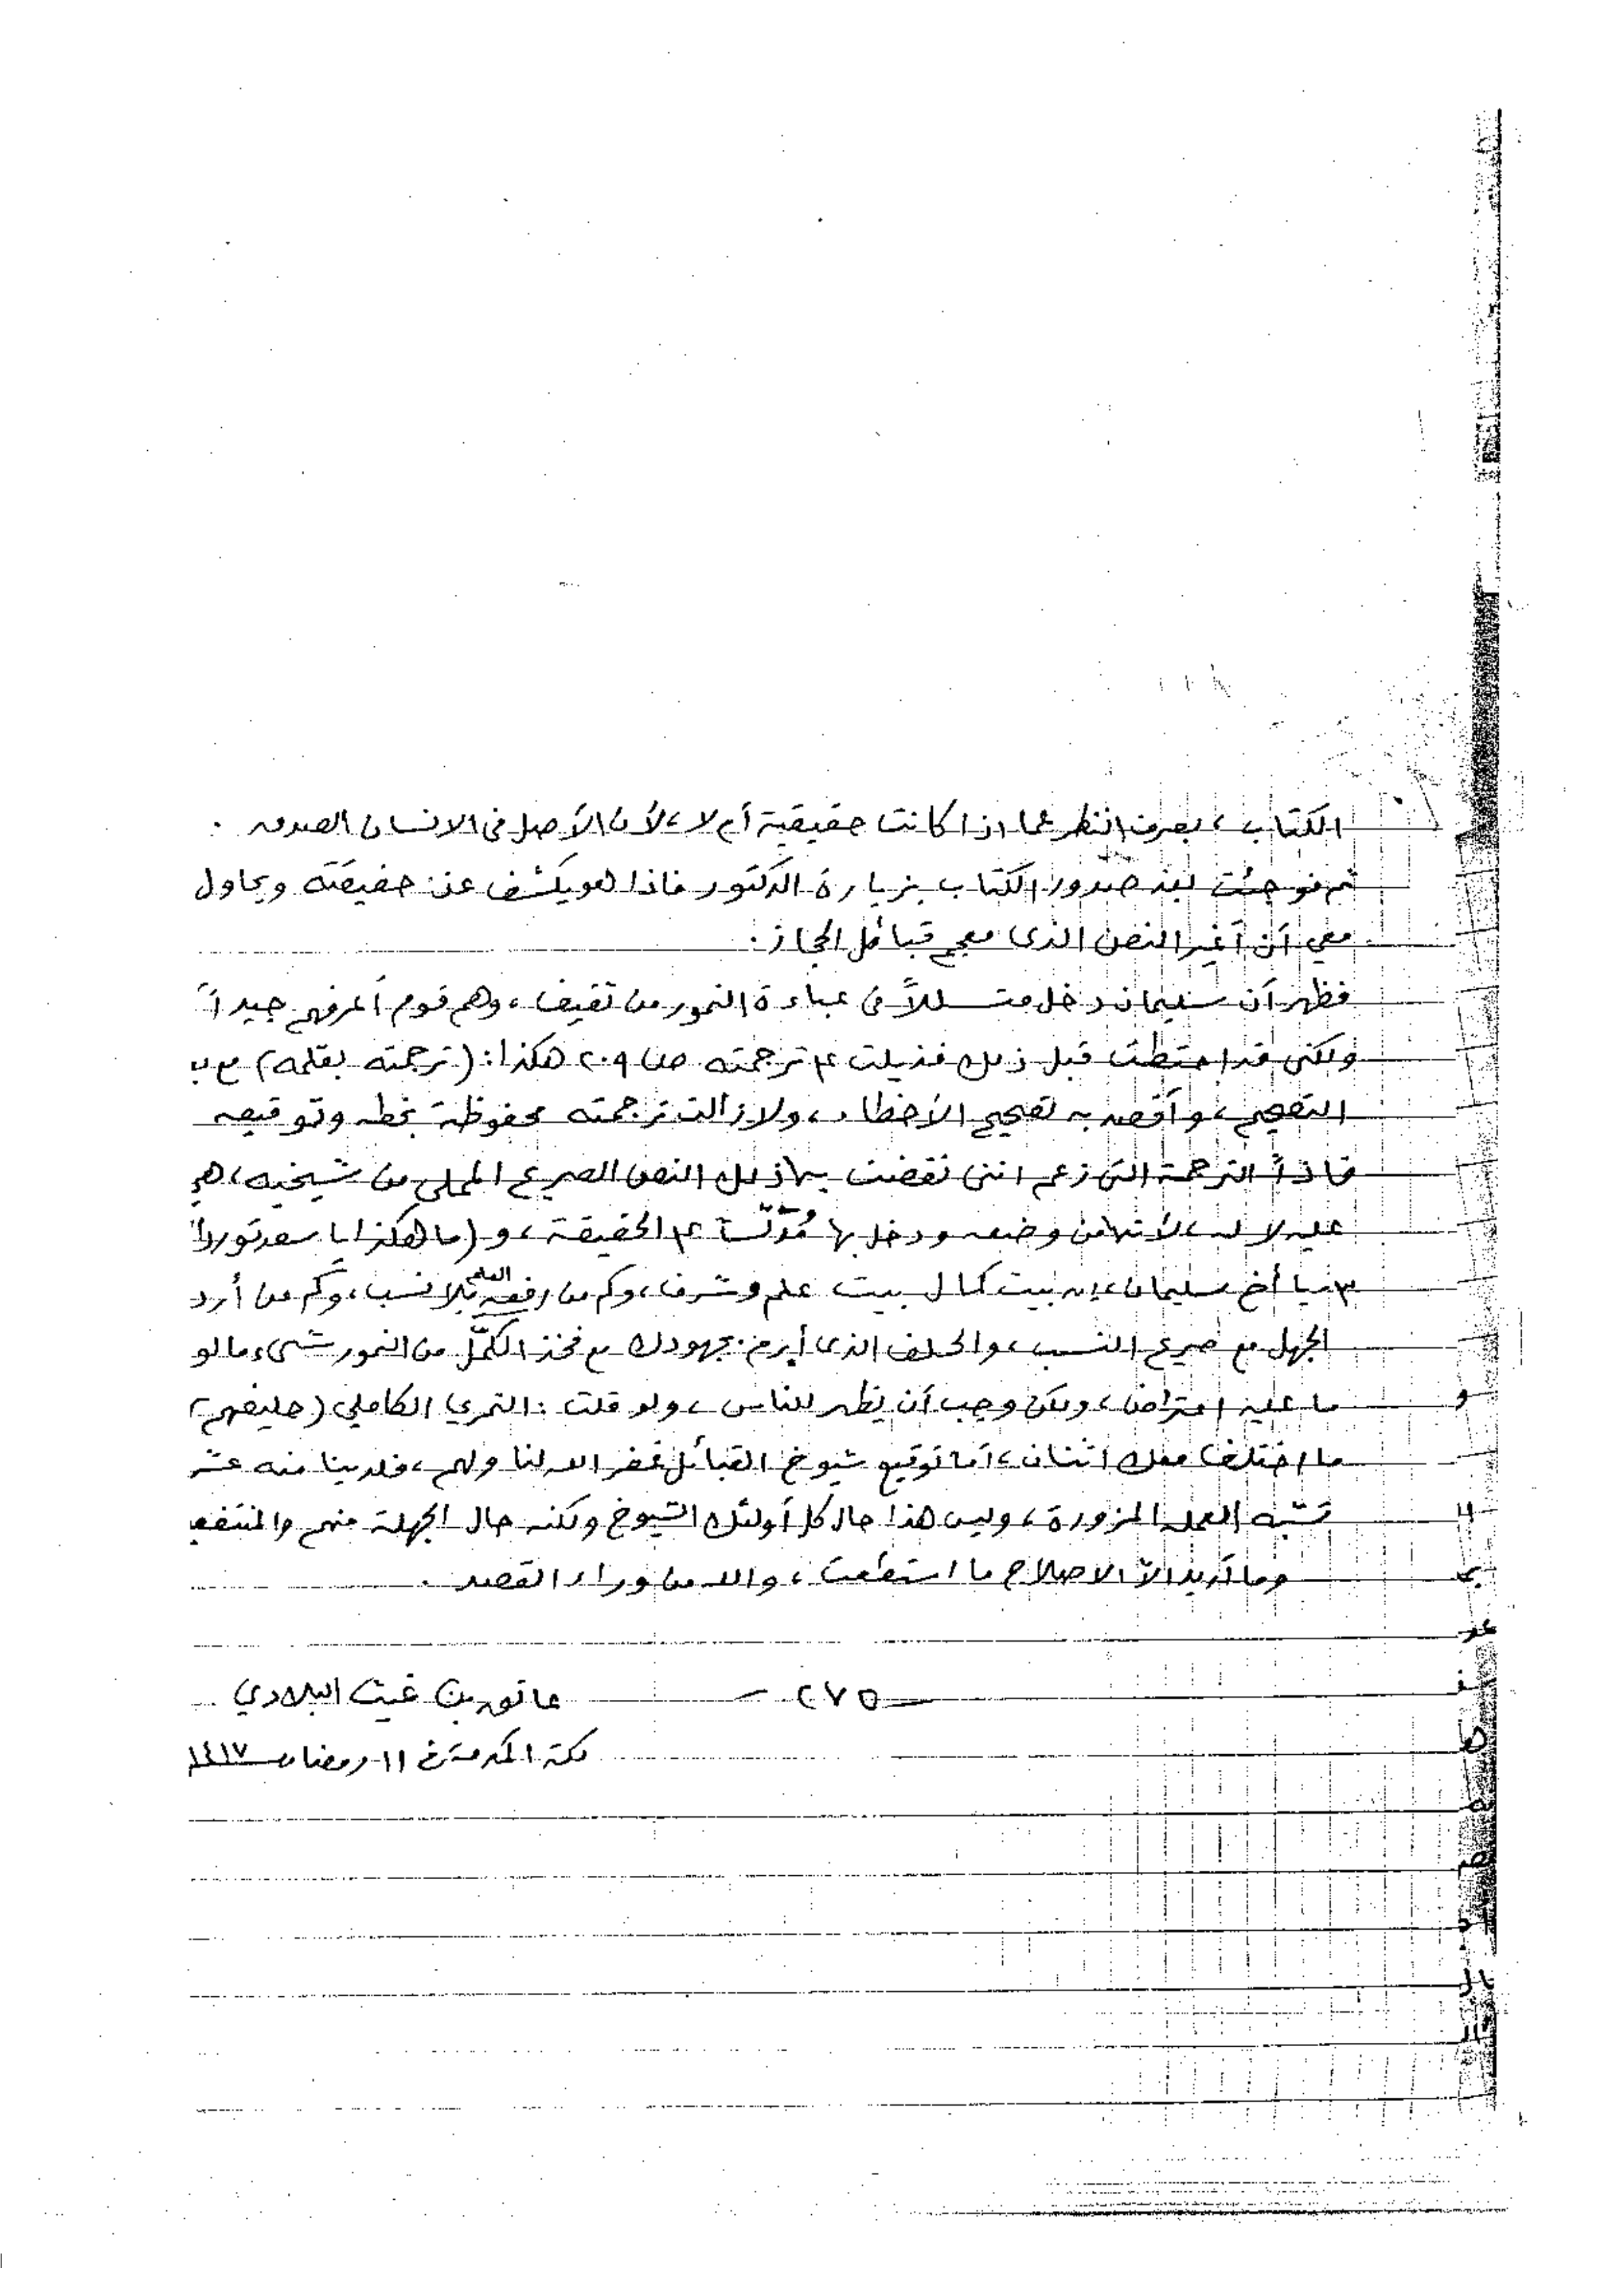 الكتاب، بصرف النظر عما اذا كانت حقيقية أم لا، لأن الأصل في الانسان الصدق .
ثم فوجئت بعد صدور الكتاب بزيارة الدكتور فاذا هو يكشف عن حقيقته ويحاول
معي أن أغير النص الذي معجم قبائل الحجاز .
فظهر أن سليمان دخل متسللاً في عباءة النمور من ثقيف، وهم قوم أعرفهم جيداً
ولكني قد احتطت قبل ذلك فذيلت ترجمته ص ٢٠٩ هكذا: (ترجمته بقلمه) مع
التصحيح، وأقصد به تصحيح الأخطاء، ولا زالت ترجمته محفوظة بخطه وتوقيعه
فاذاً الترجمة التي زعم انني نقضت بها ذلك النص الصريح المملى من شيخيه، هي
عليه لا له، لأنها من وضعه ودخل بها مُدَلِّساً الحقيقة، و(ما هكذا يا سعد تورد
٣- يا أخ سليمان، إن بيت كمال بيت علم وشرف، وكم من رفعه العلم بلا نسب، وكم من أرد
الجهل مع صريح النسب، والحلف الذي أبرم بجهودك مع فخذ الكُمَّل من النمور شيء ما لو
ما عليه اعتراض، ولكن وجب أن يظهر للناس، ولو قلت: النمري الكاملي (حليفهم)
ما اختلف معك اثنان، أما توقيع شيوخ القبائل غفر الله لنا ولهم، فلدينا منه عشر
تشبه العملة المزورة، وليس هذا حال كل أولئك الشيوخ ولكنه حال الجهلة منهم والمنتفع
وما أريد الا الاصلاح ما استطعت، والله من وراء القصد .
عاتق بن غيث البلادي
– ٢٧٥ –
مكة المكرمة في ١١ رمضان ١٤١٧